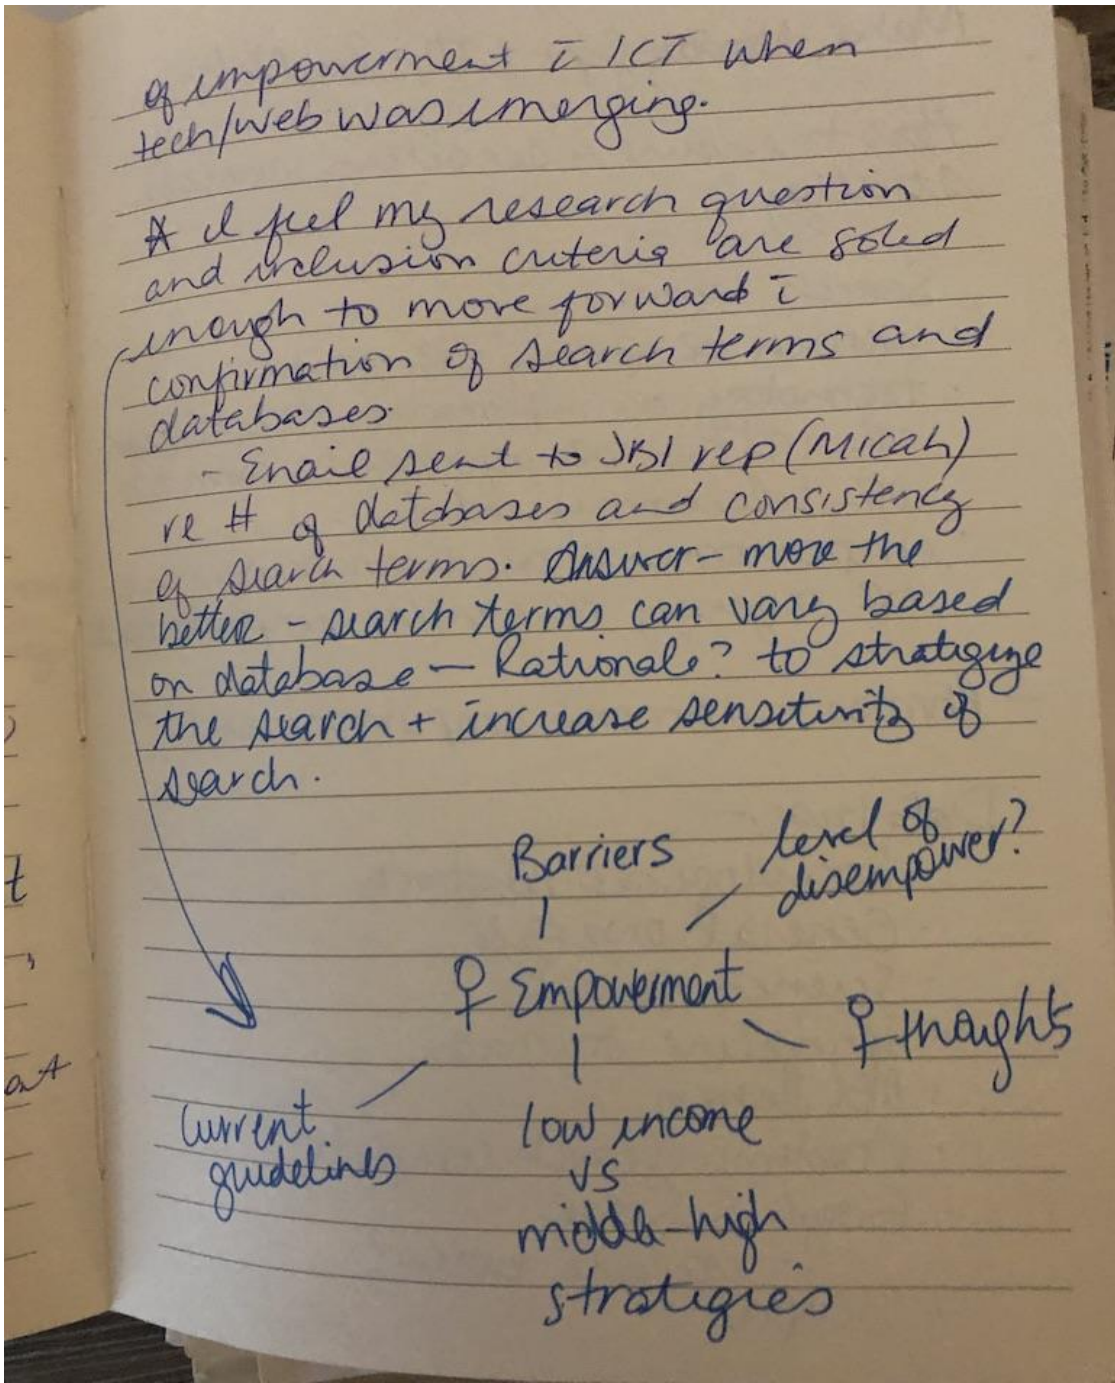 of empowerment c̄ ICT when
tech/web was emerging.
* I feel my research question
and inclusion criteria are solid
enough to move forward c̄
confirmation of search terms and
databases.
- Email sent to JBI rep (Micah)
re # of databases and consistency
of search terms. Answer - more the
better - search terms can vary based
on database — Rationale? to stratigize
the search + increase sensitivity of
search.
Barriers
level of
disempower?
♀ Empowerment
♀ thoughts
Current
guidelines
low income
vs
middle-high
stratigies